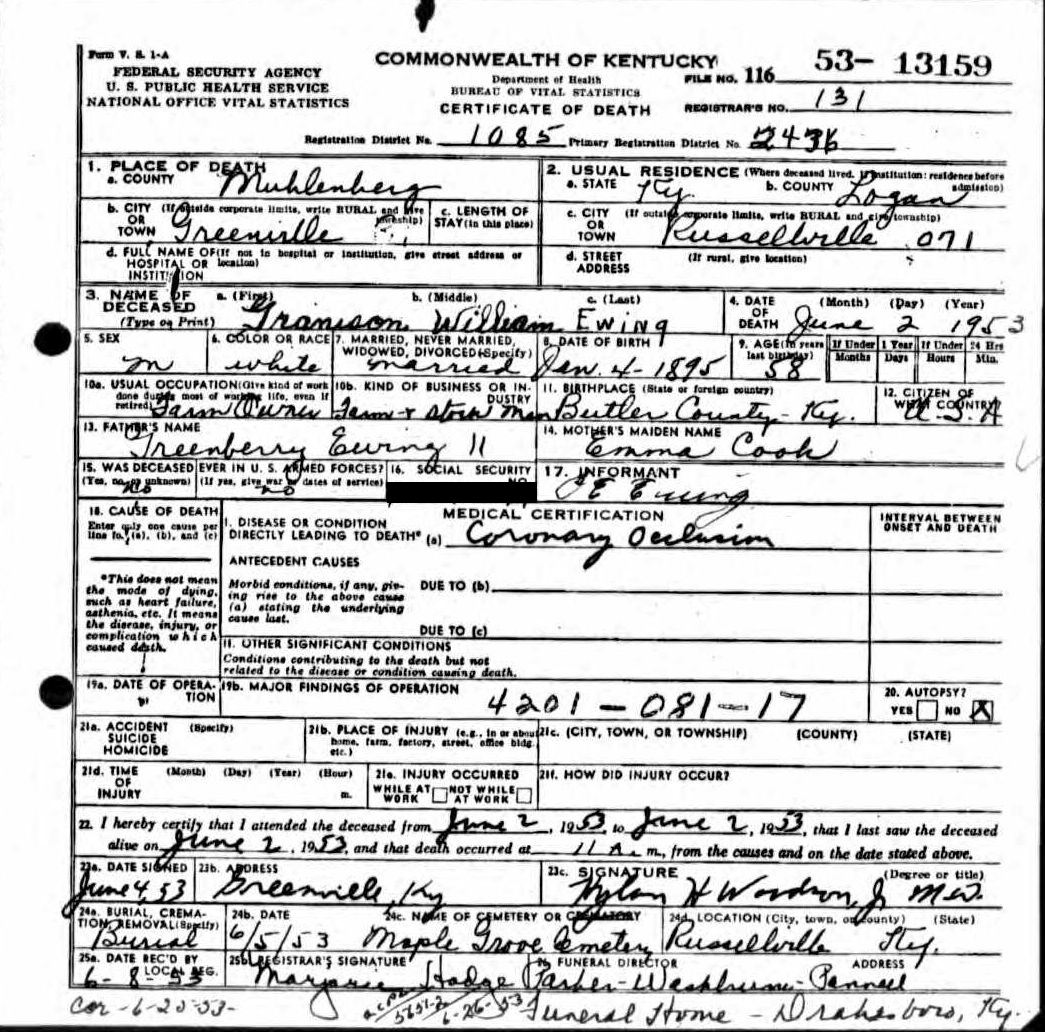 Form V. S. 1-A
FEDERAL SECURITY AGENCY
U. S. PUBLIC HEALTH SERVICE
NATIONAL OFFICE VITAL STATISTICS
COMMONWEALTH OF KENTUCKY
Department of Health
BUREAU OF VITAL STATISTICS
CERTIFICATE OF DEATH
FILE NO. 116 53- 13159
REGISTRAR'S NO. 131
Registration District No. 1085 Primary Registration District No. 2436
1. PLACE OF DEATH
a. COUNTY Muhlenberg
2. USUAL RESIDENCE (Where deceased lived. If institution: residence before admission)
a. STATE Ky b. COUNTY Logan
b. CITY (If outside corporate limits, write RURAL and give township)
OR TOWN Greenville
c. LENGTH OF STAY (in this place)
c. CITY (If outside corporate limits, write RURAL and give township)
OR TOWN Russellville 071
d. FULL NAME OF (If not in hospital or institution, give street address or location)
HOSPITAL OR INSTITUTION
d. STREET ADDRESS (If rural, give location)
3. NAME OF DECEASED (Type or Print)
a. (First) b. (Middle) c. (Last)
Granison William Ewing
4. DATE OF DEATH (Month) (Day) (Year)
June 2 1953
5. SEX
m
6. COLOR OR RACE
white
7. MARRIED, NEVER MARRIED, WIDOWED, DIVORCED (Specify)
married
8. DATE OF BIRTH
Jan. 4-1895
9. AGE (In years last birthday)
58
If Under 1 Year Months Days
If Under 24 Hrs Hours Min.
10a. USUAL OCCUPATION (Give kind of work done during most of working life, even if retired)
Farm Owner
10b. KIND OF BUSINESS OR INDUSTRY
Farm & stock man
11. BIRTHPLACE (State or foreign country)
Butler County - Ky.
12. CITIZEN OF WHAT COUNTRY
U.S.A
13. FATHER'S NAME
Greenberry Ewing II
14. MOTHER'S MAIDEN NAME
Emma Cook
15. WAS DECEASED EVER IN U. S. ARMED FORCES?
(Yes, no, or unknown) (If yes, give war or dates of service)
no no
16. SOCIAL SECURITY NO.
17. INFORMANT
Ewing
18. CAUSE OF DEATH
Enter only one cause per line for (a), (b), and (c)
MEDICAL CERTIFICATION
INTERVAL BETWEEN ONSET AND DEATH
I. DISEASE OR CONDITION DIRECTLY LEADING TO DEATH* (a) Coronary Occlusion
ANTECEDENT CAUSES
Morbid conditions, if any, giving rise to the above cause (a) stating the underlying cause last.
DUE TO (b)
DUE TO (c)
*This does not mean the mode of dying, such as heart failure, asthenia, etc. It means the disease, injury, or complication which caused death.
II. OTHER SIGNIFICANT CONDITIONS
Conditions contributing to the death but not related to the disease or condition causing death.
19a. DATE OF OPERATION
19b. MAJOR FINDINGS OF OPERATION
4201-081-17
20. AUTOPSY?
YES NO X
21a. ACCIDENT SUICIDE HOMICIDE (Specify)
21b. PLACE OF INJURY (e.g., in or about home, farm, factory, street, office bldg. etc.)
21c. (CITY, TOWN, OR TOWNSHIP) (COUNTY) (STATE)
21d. TIME OF INJURY (Month) (Day) (Year) (Hour) m.
21e. INJURY OCCURRED
WHILE AT WORK NOT WHILE AT WORK
21f. HOW DID INJURY OCCUR?
22. I hereby certify that I attended the deceased from June 2, 1953, to June 2, 1953, that I last saw the deceased
alive on June 2, 1953, and that death occurred at 11 A m., from the causes and on the date stated above.
23a. DATE SIGNED
June 4, 53
23b. ADDRESS
Greenville, Ky
23c. SIGNATURE (Degree or title)
H Woodson Jr M.D.
24a. BURIAL, CREMATION, REMOVAL (Specify)
Burial
24b. DATE
6/5/53
24c. NAME OF CEMETERY OR CREMATORY
Maple Grove Cemetery
24d. LOCATION (City, town, or county) (State)
Russellville Ky.
25a. DATE REC'D BY LOCAL REG.
6-8-53
25b. REGISTRAR'S SIGNATURE
Marjorie Hodge
FUNERAL DIRECTOR ADDRESS
Parker-Washburn-Pannell
cor-6-25-53- 6-26-53 Funeral Home - Drakesboro, Ky.